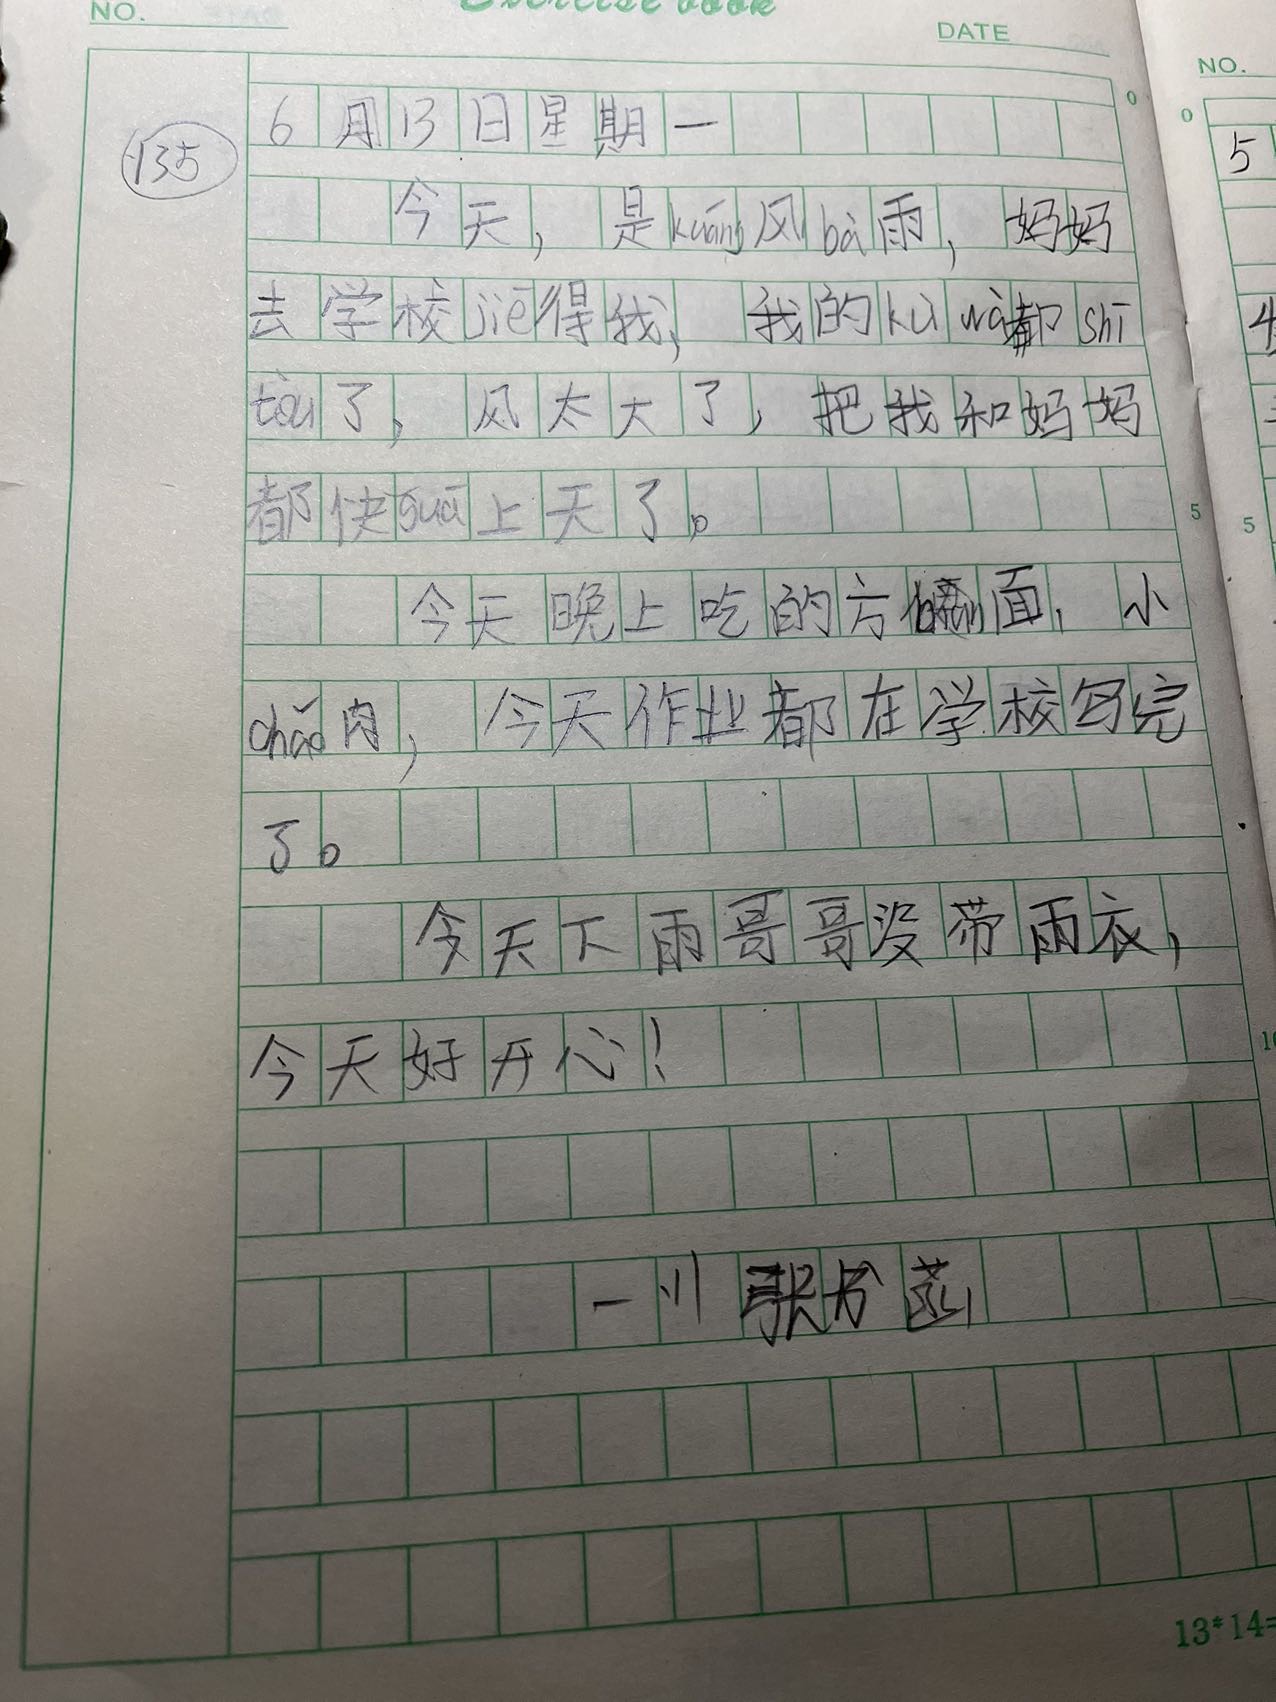 NO.
Exercise book
DATE
NO.
0
0
135
6月13日星期一
5
今天，是kuáng风bà雨，妈妈
去学校jiē得我，我的kù wà都shī
4
tòu了，风太大了，把我和妈妈
都快guā上天了。
5
5
今天晚上吃的方biàn面，小
chǎo肉，今天作业都在学校写完
了。
今天下雨哥哥没带雨衣，
今天好开心！
10
一川 张书
13*14=